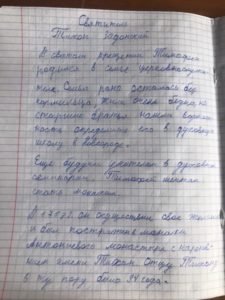 Святитель
Тихон Задонский
В святом крещении Тимофей
родился в семье церковнослужи-
теля. Семья рано осталась без
кормильца, жила очень бедно, но
старшие братья нашли возмож-
ность определить его в духовную
школу в Новгороде.
Еще будучи учителем в духовной
семинарии Тимофей мечтал
стать монахом.
он осуществил свое желание
и был пострижен монахом
монастыря с нарече-
нием имени Тихон. Отцу Тихону
в ту пору было 34 года.